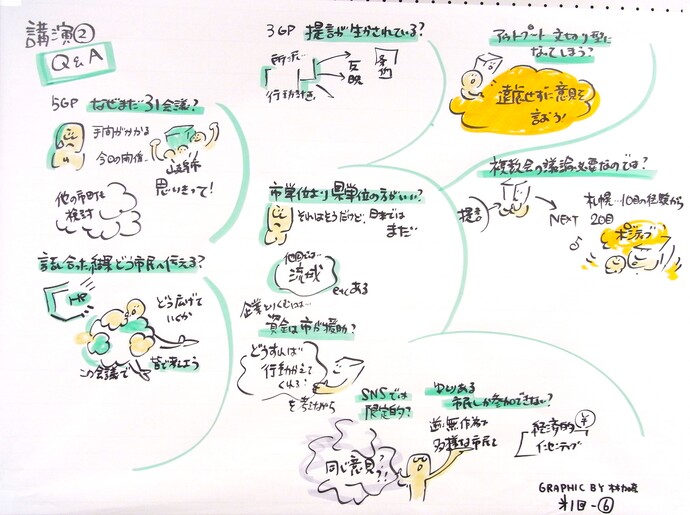 講演②
Q&A
5GP なぜまだ31会議?
手間がかかる
今回の開催…
思いきって!
他の市町も
検討
話し合った結果どう市民へ伝える?
HP
どう広げて
いくか
この会議で
皆で考えよう
3GP 提言が生かされている?
行動計画
反映
条例
アウトプート 文切り型に
なってしまう?
遠慮せずに意見を
言おう!
市単位より県単位の方がいい?
それはそうだけど、日本では
まだ…
他国では…
流域
etcある
企業とりくむには…
資金は市が援助?
どうすれば
行動かえて
くれる?
を考えながら
複数会の議論必要なのでは?
提言
NEXT
札幌…10回の経験から
20回
ポジティブ♪
SNSでは
限定的?
同じ意見?
?!
ゆとりある
市民しか参加できない?
無作為で
多様な市民を
経済的 ¥
インセンティブ
GRAPHIC BY
第1回-⑥